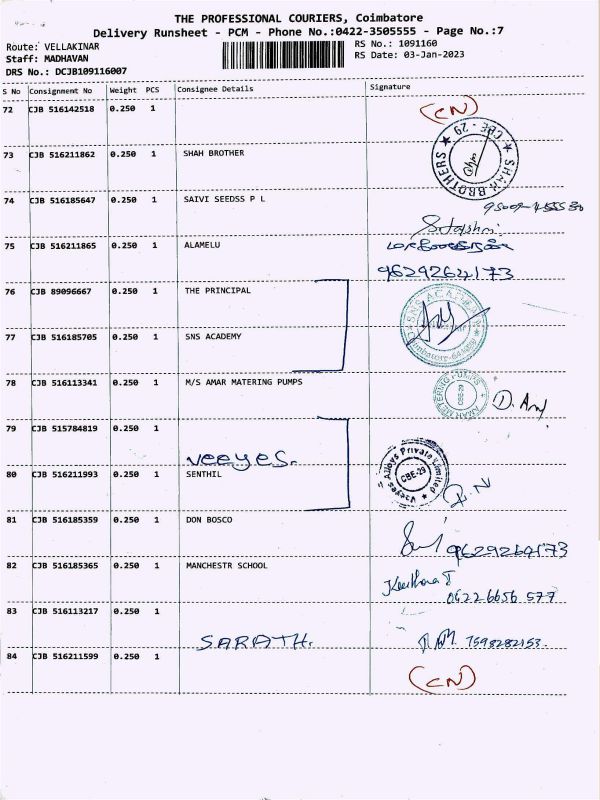 THE PROFESSIONAL COURIERS, Coimbatore
Delivery Runsheet - PCM - Phone No.:0422-3505555 - Page No.:7
Route: VELLAKINAR
RS No.: 1091160
Staff: MADHAVAN
RS Date: 03-Jan-2023
DRS No.: DCJB109116007
S No Consignment No Weight PCS Consignee Details Signature
72 CJB 516142518 0.250 1 (CN)
73 CJB 516211862 0.250 1 SHAH BROTHER
SHAH BROTHERS CBE - 29
74 CJB 516185647 0.250 1 SAIVI SEEDSS P L
75 CJB 516211865 0.250 1 ALAMELU
9629264173
76 CJB 89096667 0.250 1 THE PRINCIPAL
SNS ACADEMY
77 CJB 516185705 0.250 1 SNS ACADEMY
78 CJB 516113341 0.250 1 M/S AMAR MATERING PUMPS
79 CJB 515784819 0.250 1
veeyes.
Veeyes Alloys Private Limited CBE-29
80 CJB 516211993 0.250 1 SENTHIL
81 CJB 516185359 0.250 1 DON BOSCO
9629264173
82 CJB 516185365 0.250 1 MANCHESTR SCHOOL
04226656 577
83 CJB 516113217 0.250 1
SARATH. 7598282153
84 CJB 516211599 0.250 1 (CN)